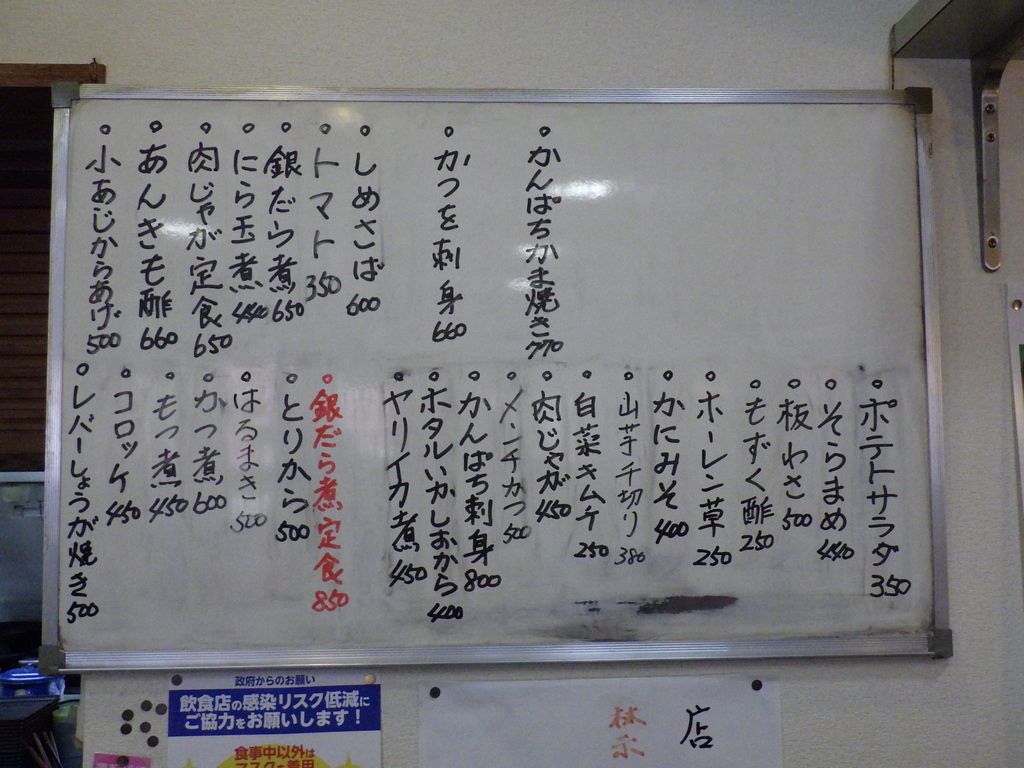 かんぱちかま焼き770
かつを刺身660
しめさば600
トマト350
銀だら煮650
にら玉煮440
肉じゃが定食650
あんきも酢660
小あじからあげ500
ポテトサラダ350
そらまめ440
板わさ500
もずく酢250
ホーレン草250
かにみそ400
山芋千切り380
白菜キムチ250
肉じゃが450
メンチかつ500
かんぱち刺身800
ホタルいかしおから400
ヤリイカ煮450
銀だら煮定食850
とりから500
はるまき500
かつ煮600
もつ煮450
コロッケ450
レバーしょうが焼き500
政府からのお願い
飲食店の感染リスク低減に
ご協力をお願いします！
食事中以外は
マスクを着用
店
禁